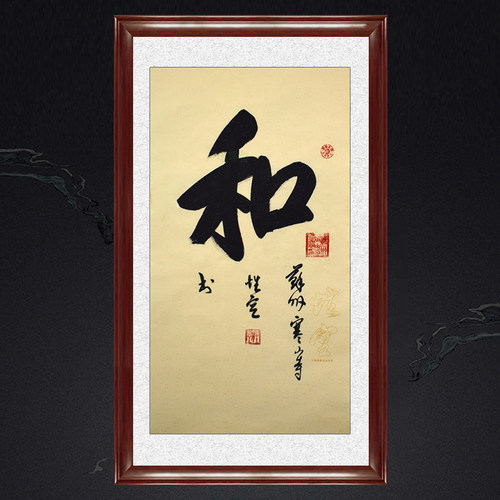 和
蘇州寒山寺
性空
书